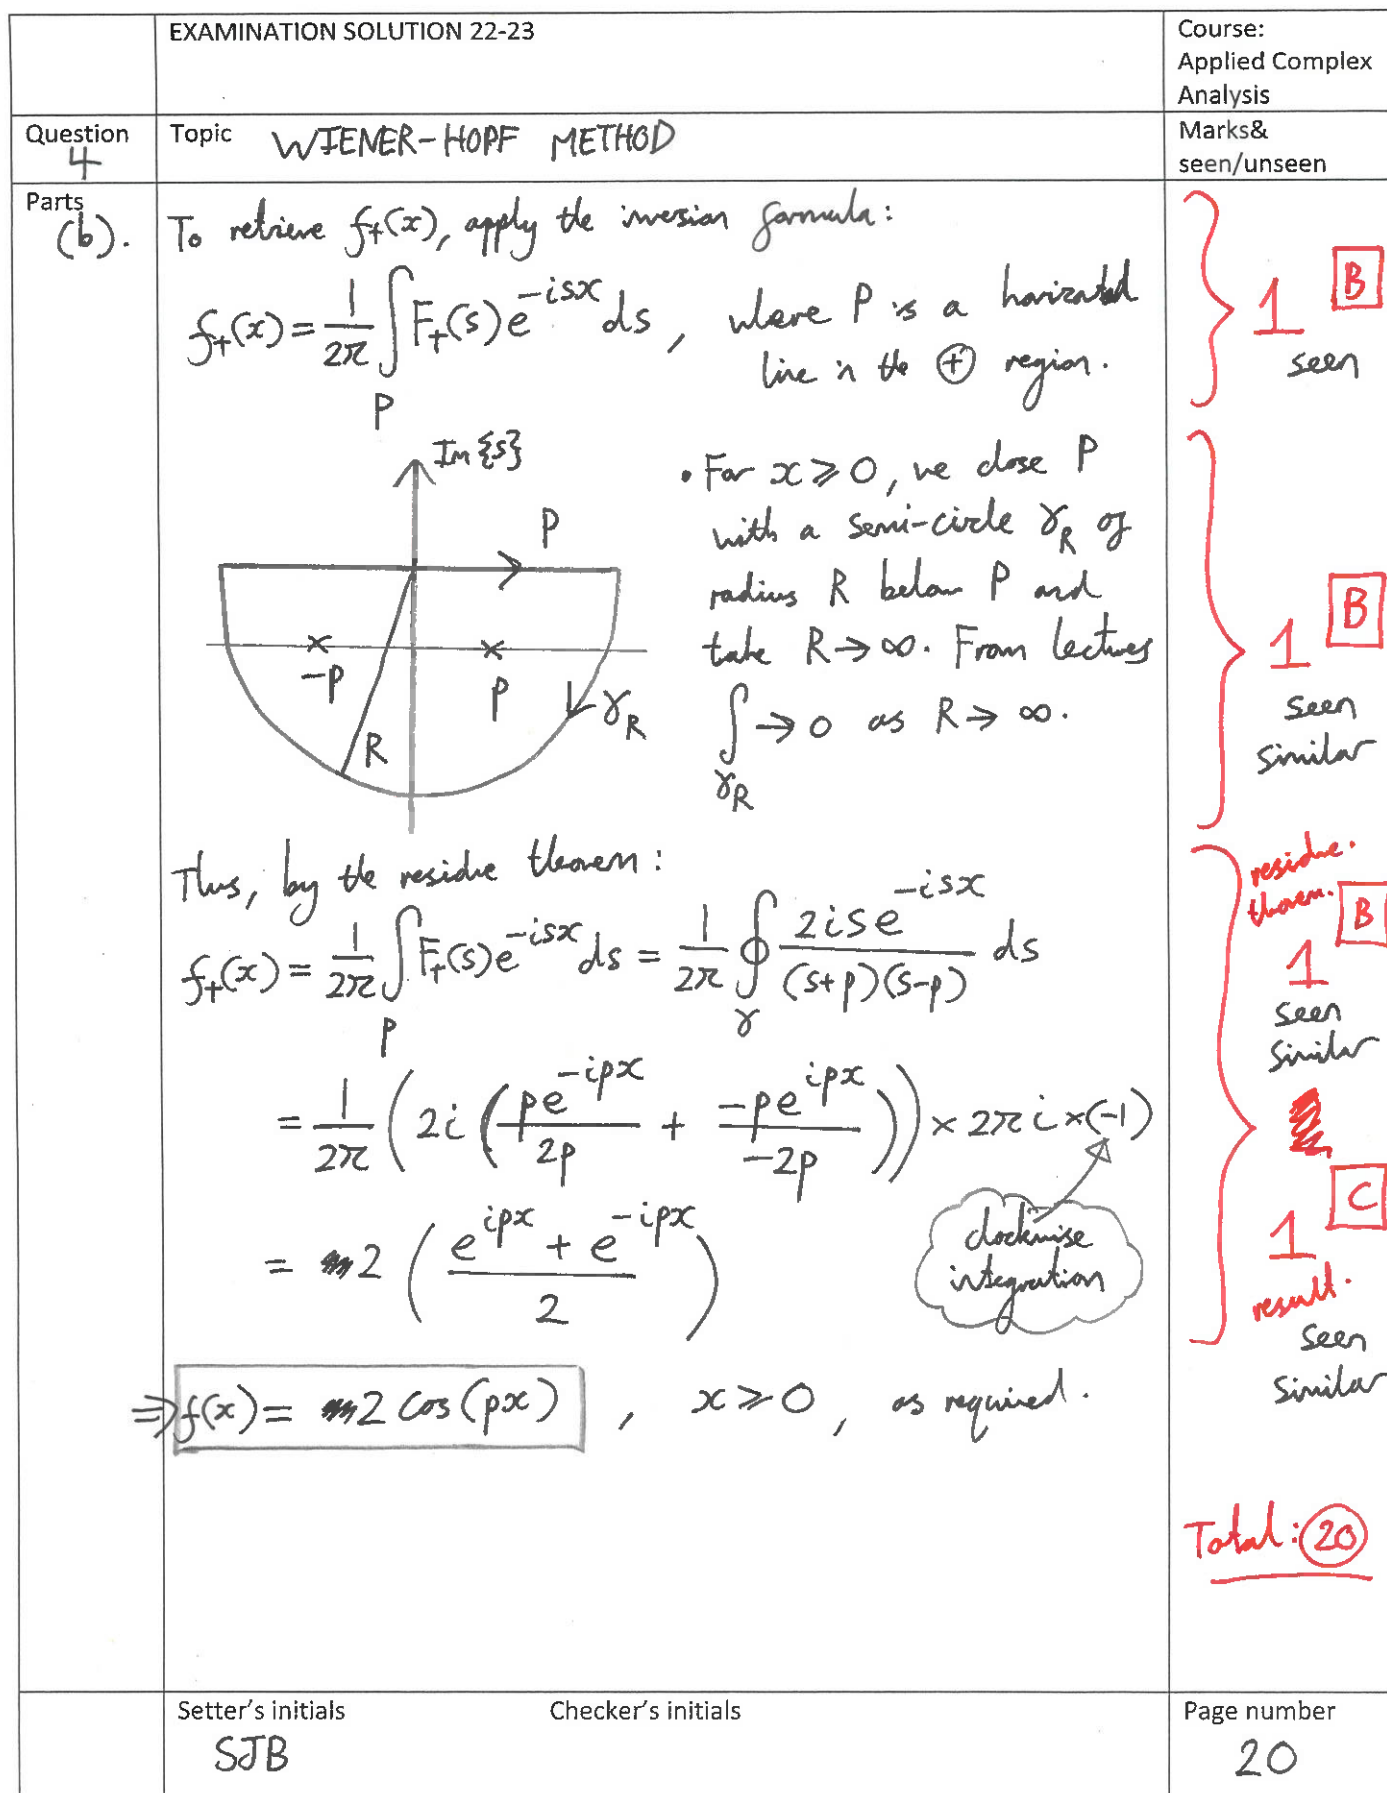 EXAMINATION SOLUTION 22-23
Course:
Applied Complex
Analysis
Question
4
Topic WIENER-HOPF METHOD
Marks&
seen/unseen
Parts
(b).
To retrieve f₊(x), apply the inversion formula:
f₊(x) = 1/2π ∫_P F₊(s) e^{-isx} ds, where P is a horizontal
line in the ⊕ region.
1 B
seen
Im{s}
P
-p
p
R
γ_R
• For x ⩾ 0, we close P
with a semi-circle γ_R of
radius R below P and
take R → ∞. From lectures
∫_{γ_R} → 0 as R → ∞.
1 B
seen
similar
Thus, by the residue theorem:
f₊(x) = 1/2π ∫_P F₊(s) e^{-isx} ds = 1/2π ∮_γ 2is e^{-isx} / (s+p)(s-p) ds
= 1/2π (2i (pe^{-ipx}/2p + -pe^{ipx}/-2p)) × 2πi × (-1)
clockwise
integration
= 2 ((e^{ipx} + e^{-ipx})/2)
⇒ f(x) = 2 cos(px), x ⩾ 0, as required.
residue.
theorem.
B
1
seen
similar
C
1
result.
seen
similar
Total: 20
Setter's initials
SJB
Checker's initials
Page number
20